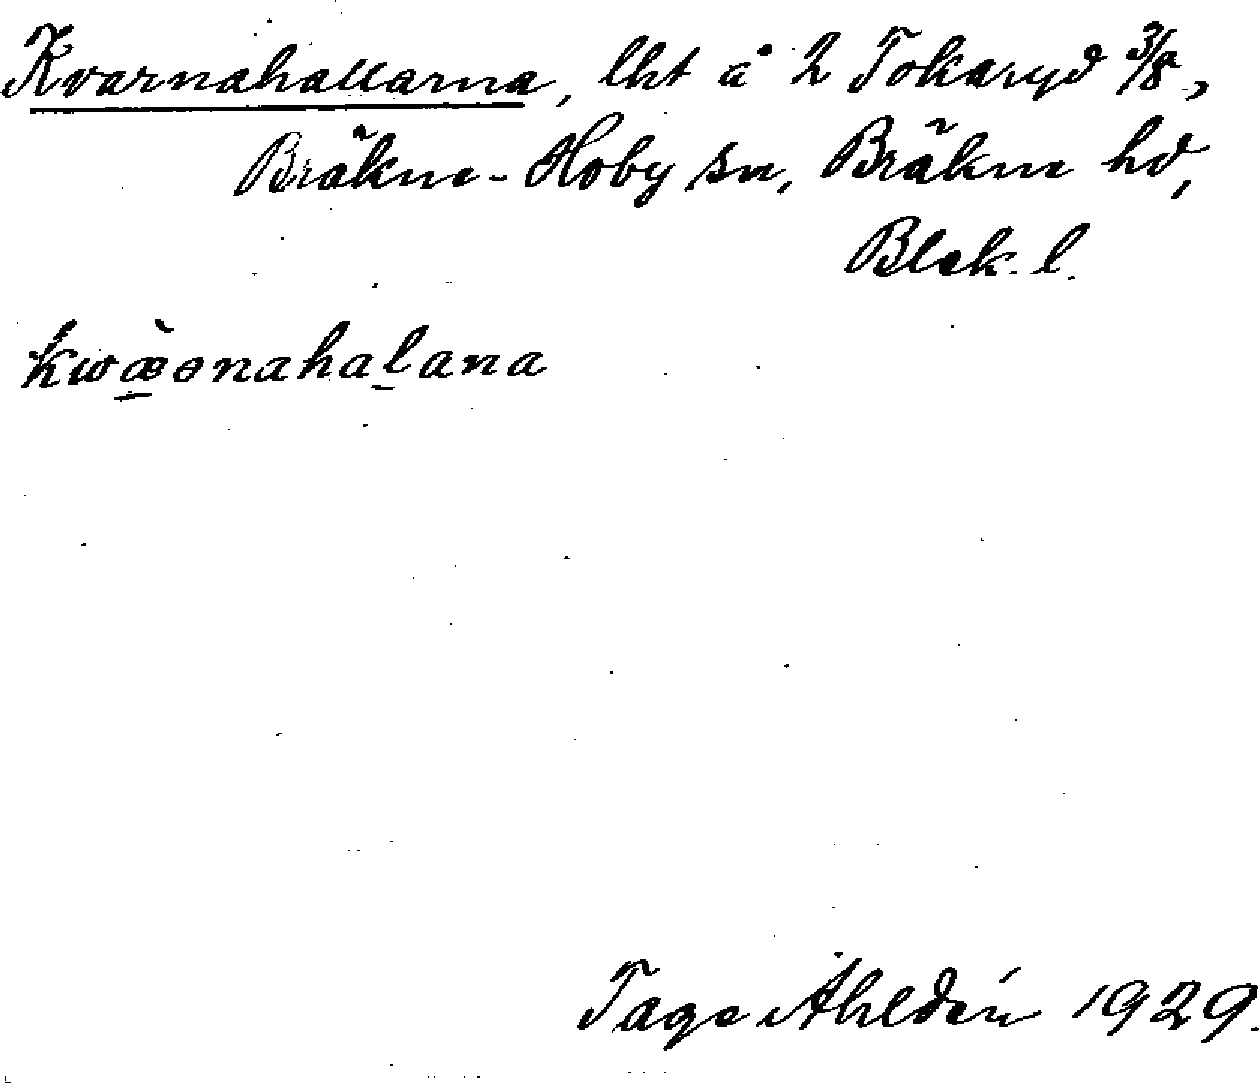 Kvarnahallarna, lht å 2 Tokaryd 3/8,
Bräkne-Hoby sn, Bräkne hd,
Blek. l.
kwæ̀ənahalana
Tage Ahldén 1929.